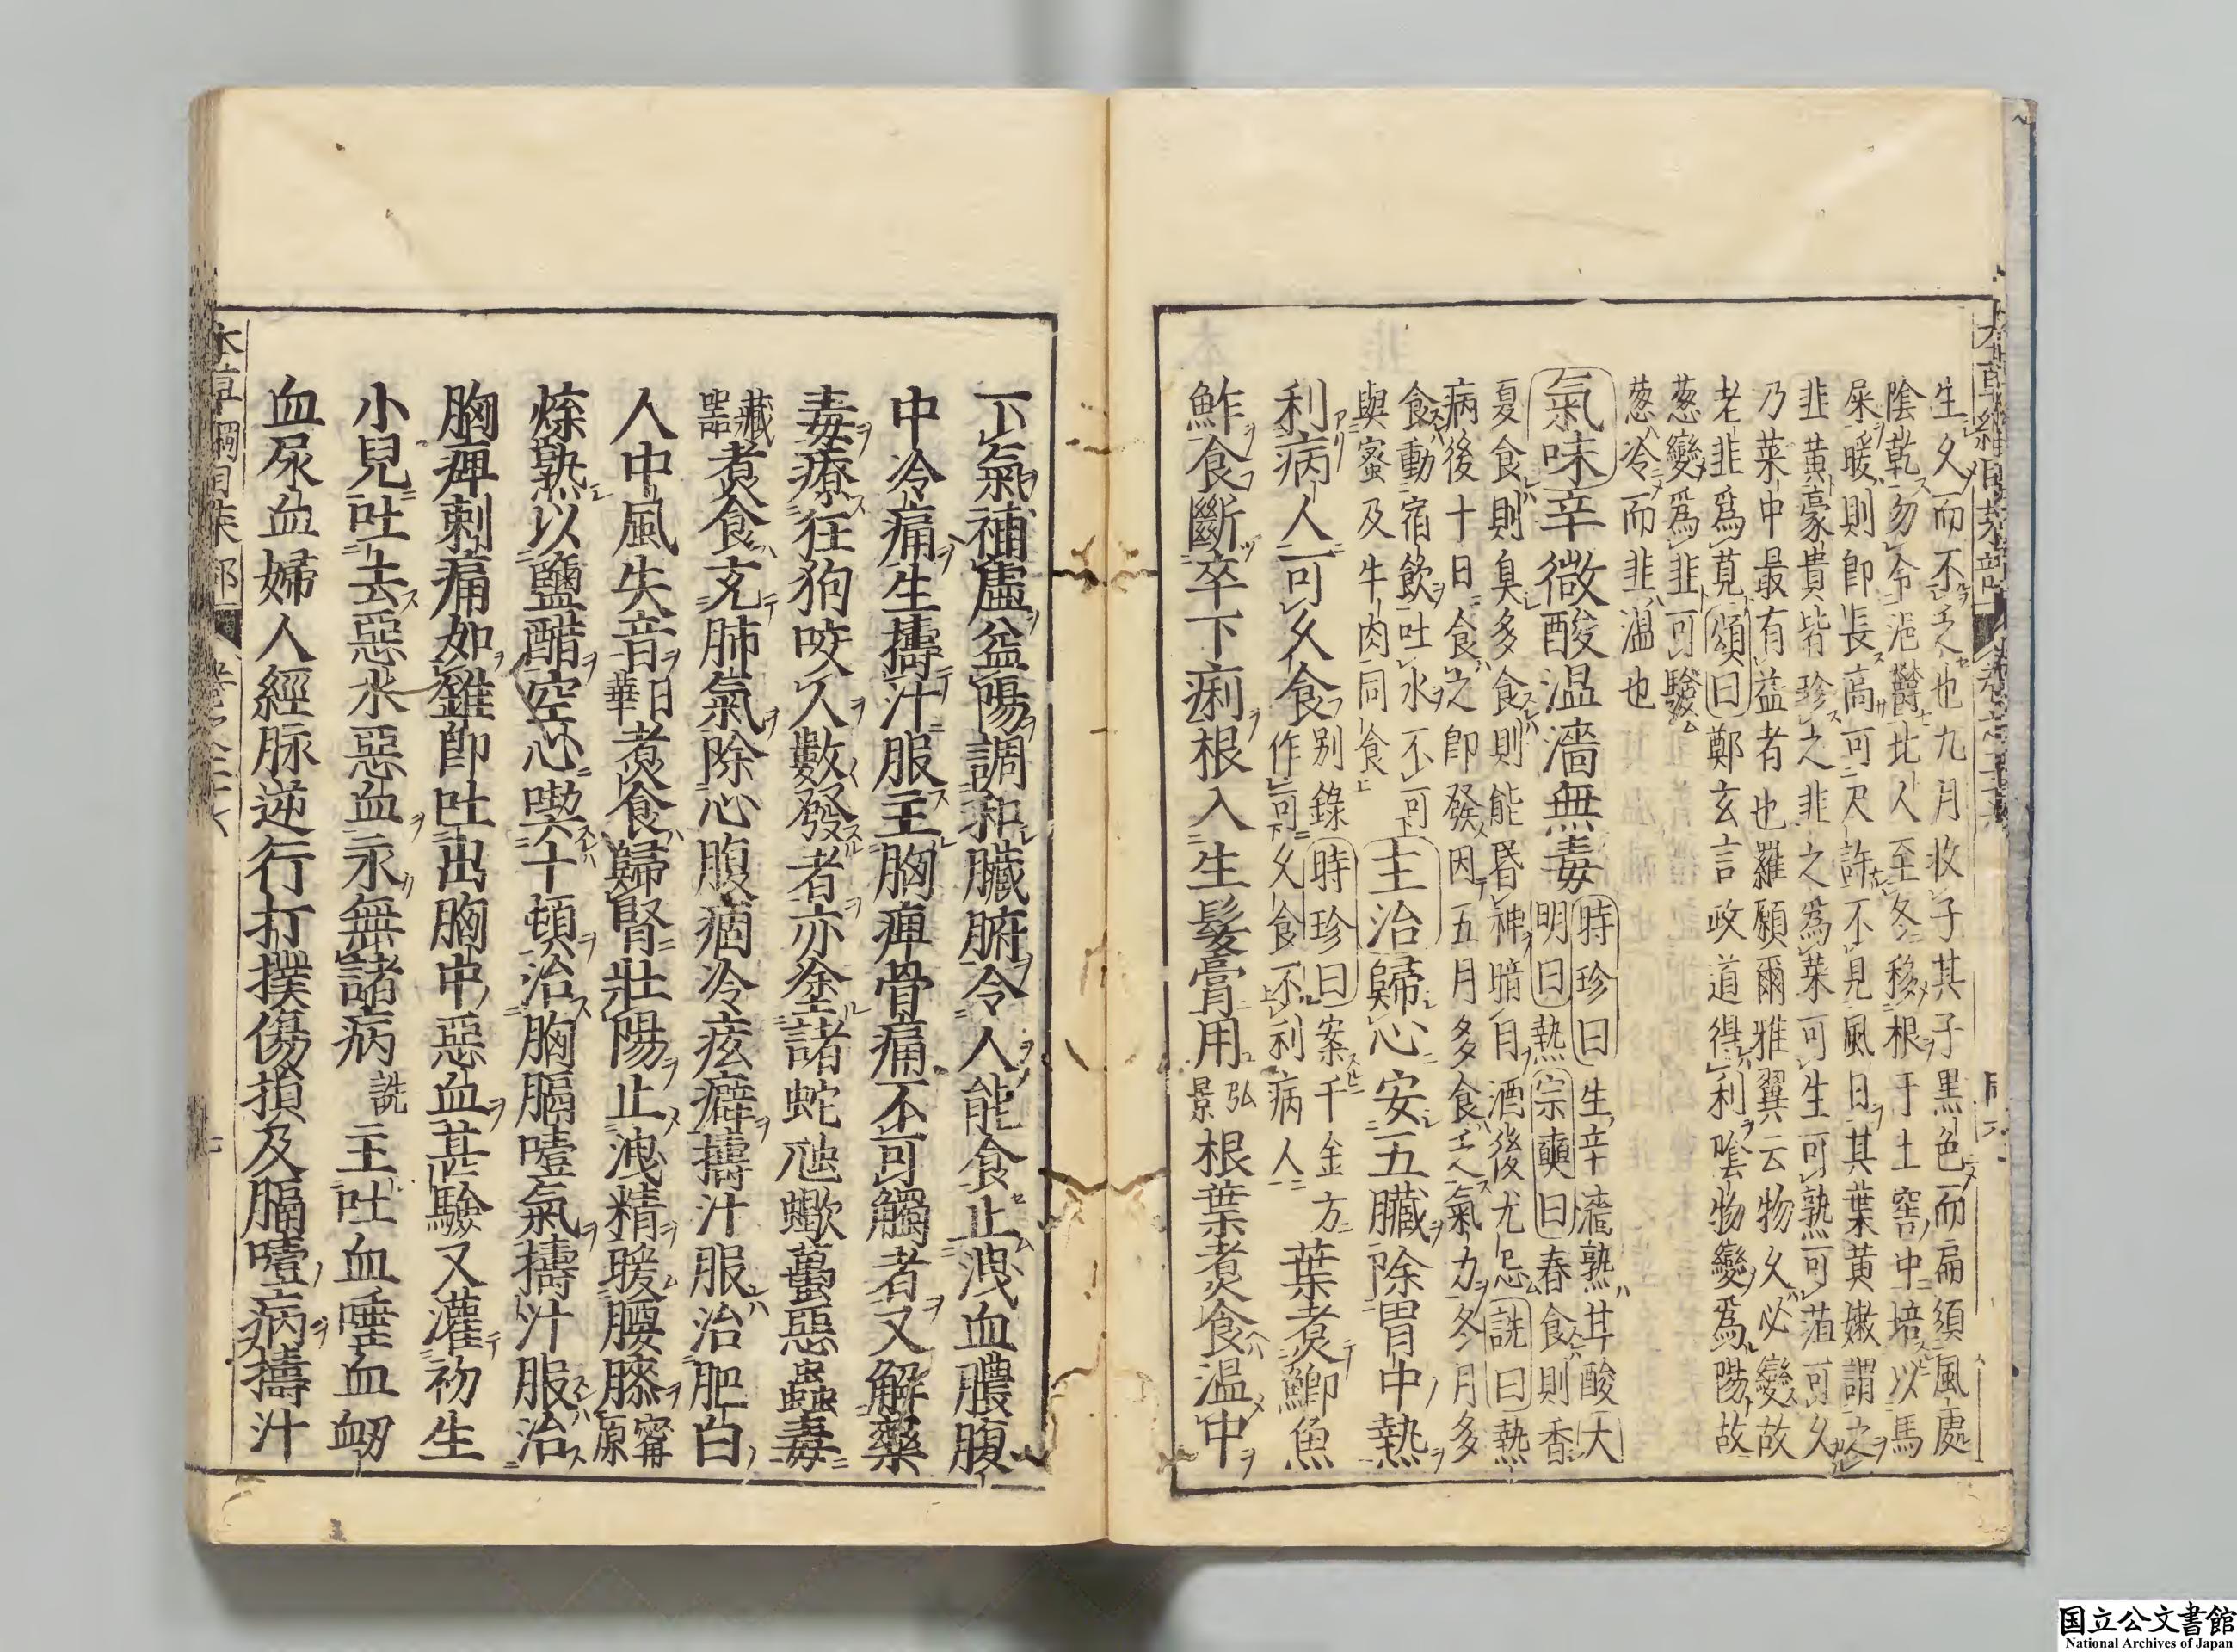 本草綱目菜部 卷之二十六
生久而不乏也九月收子其子黑色而扁須風處
陰乾勿令浥欝北人至冬移根于土窖中培以馬
屎暖則卽長高可尺許不見風日其葉黄嫩謂之
韭黄豪貴皆珍之韭之爲菜可生可熟可菹可久
乃菜中最有益者也羅願爾雅翼云物久必變故
老韭爲莧頌曰鄭玄言政道得利陰物變爲陽故
葱變爲韭可驗
葱冷而韭温也
氣味辛微酸温濇無毒時珍曰生辛濇熟甘酸大
明曰熱宗奭曰春食則香
夏食則臭多食則能昏神暗目酒後尤忌詵曰熱
病後十日食之卽發困五月多食乏氣力冬月多
食動宿飲吐水不可
與蜜及牛肉同食主治歸心安五臟除胃中熱
利病人可久食别錄時珍曰案千金方
作可久食不利病人葉煮鯽魚
鮓食斷卒下痢根入生髮膏用弘景根葉煮食温中
下氣補虛益陽調和臟腑令人能食止洩血膿腹
中冷痛生擣汁服主胸痺骨痛不可觸者又解藥
毒療狂狗咬人數發者亦塗諸蛇虺蠍蠆惡蟲毒
藏器煮食充肺氣除心腹痼冷痃癖擣汁服治肥白
人中風失音日華煮食歸腎壯陽止洩精暖腰膝寗原
煠熟以鹽醋空心喫十頓治胸膈噎氣擣汁服治
胸痺刺痛如錐卽吐出胸中惡血甚驗又灌初生
小兒吐去惡水惡血永無諸病詵主吐血唾血衂
血尿血婦人經脉逆行打撲傷損及膈噎病擣汁
本草綱目菜部 卷之二十六
国立公文書館
National Archives of Japan